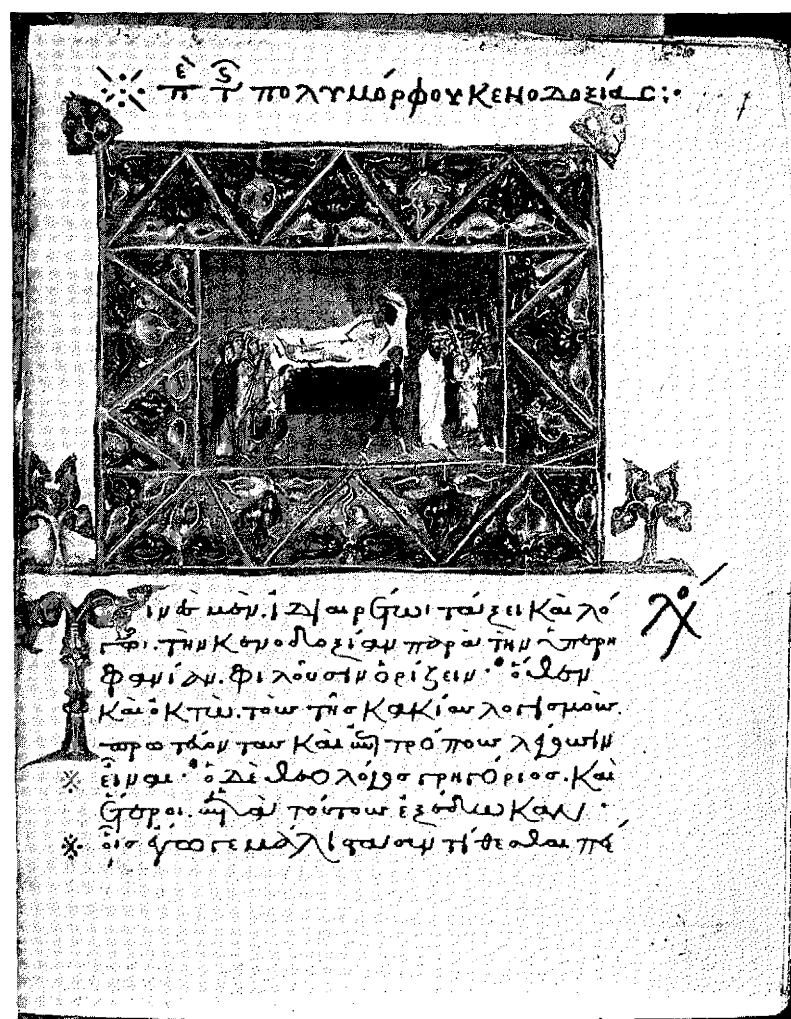 πε τς πολυμόρφου κενοδοξίας :·
Τινὲς μὲν. ἰδιαιρέτωι τάξει καὶ λό
γωι. τὴν κενοδοξίαν παρὰ τὴν ὑπερη
φανίαν. φιλοῦσιν ὁρίζειν· ὅθεν
καὶ ὀκτὼ. τοὺς τῆς κακίας λογισμοὺς.
καὶ τρόπους λέγουσιν
εἶναι· ὁ δὲ θεολόγος γρηγόριος. καὶ
ἕτεροι. τούτους ἐξέδωκαν·
οἷς ἔγωγε μάλιστα τίθεσθαι